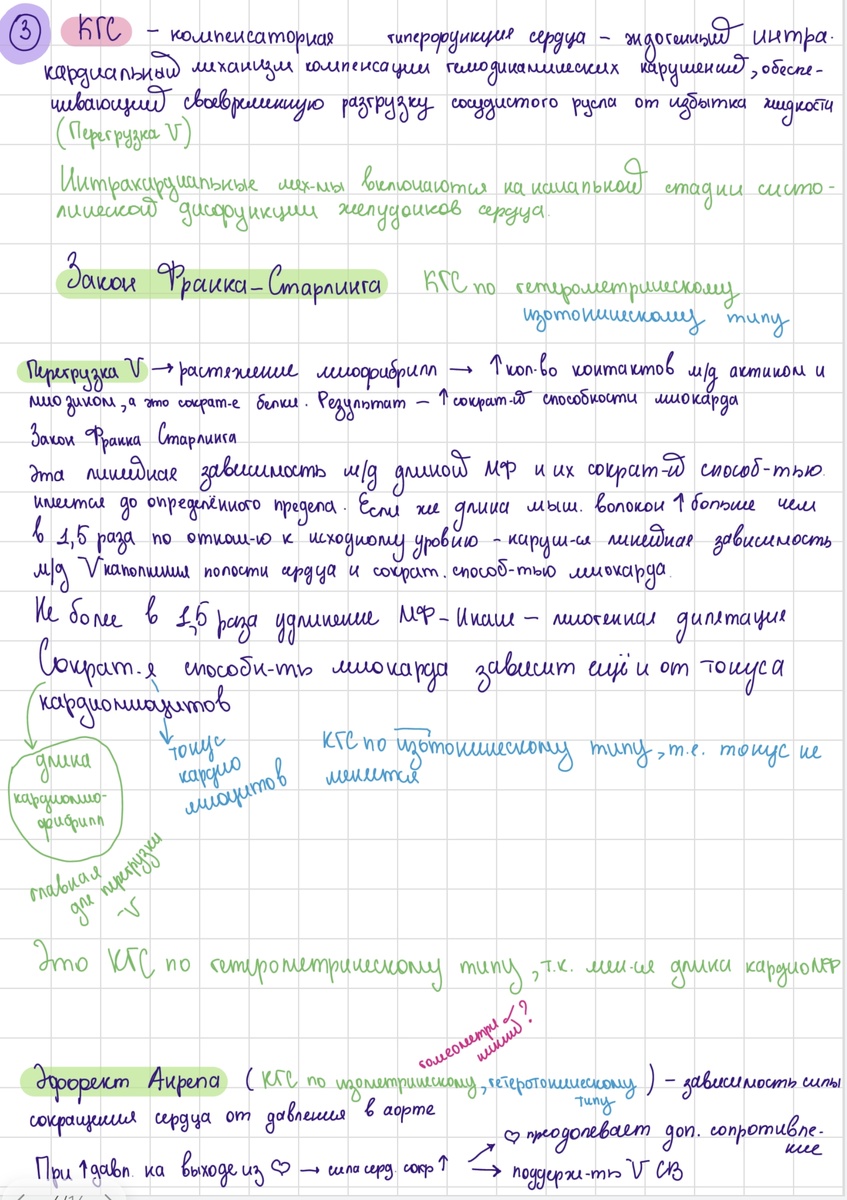 ③ КГС – компенсаторная гиперфункция сердца – эндогенный интра-
кардиальный механизм компенсации гемодинамических нарушений, обеспе-
чивающий своевременную разгрузку сосудистого русла от избытка жидкости
(Перегрузка V)
Интракардиальные мех-мы включаются на начальной стадии систо-
лической дисфункции желудочков сердца.
Закон Франка-Старлинга КГС по гетерометрическому
изотоническому типу
Перегрузка V → растяжение миофибрилл → ↑ кол-во контактов м/д актином и
миозином, а это сократ-е белки. Результат – ↑ сократ-й способности миокарда
Закон Франка Старлинга
Эта линейная зависимость м/д длиной МФ и их сократ-й способ-тью
имеется до определённого предела. Если же длина мыш. волокон ↑ больше чем
в 1,5 раза по отнош-ю к исходному уровню – наруш-ся линейная зависимость
м/д V наполнения полости сердца и сократ. способ-тью миокарда.
Не более в 1,5 раза удлинение МФ – Иначе – миогенная дилятация
Сократ-я способн-ть миокарда зависит ещё и от тонуса
кардиомиоцитов
длина
кардиомио-
фибрилл
главная
для перегрузки
V
тонус
кардио
миоцитов
КГС по изотоническому типу, т.е. тонус не
меняется
Это КГС по гетерометрическому типу, т.к. мен-ся длина кардиоМФ
гомеометри
ческий?
Эффект Анрепа (КГС по изометрическому, гетеротоническому
типу) – зависимость силы
сокращения сердца от давления в аорте
При ↑ давл. на выходе из ♡ → сила серд. сокр ↑
→ ♡ преодолевает доп. сопротивле-
ние
→ поддерж-ть V СВ